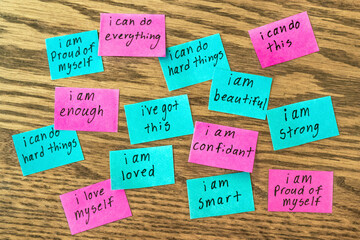 i am
Proud of
myself
i can do
everything
i can do
hard things
i can do
this
i am
enough
i've got
this
i am
beautiful
i am
Strong
i can do
hard things
i am
loved
i am
Confidant
i love
myself
i am
Smart
i am
Proud of
myself